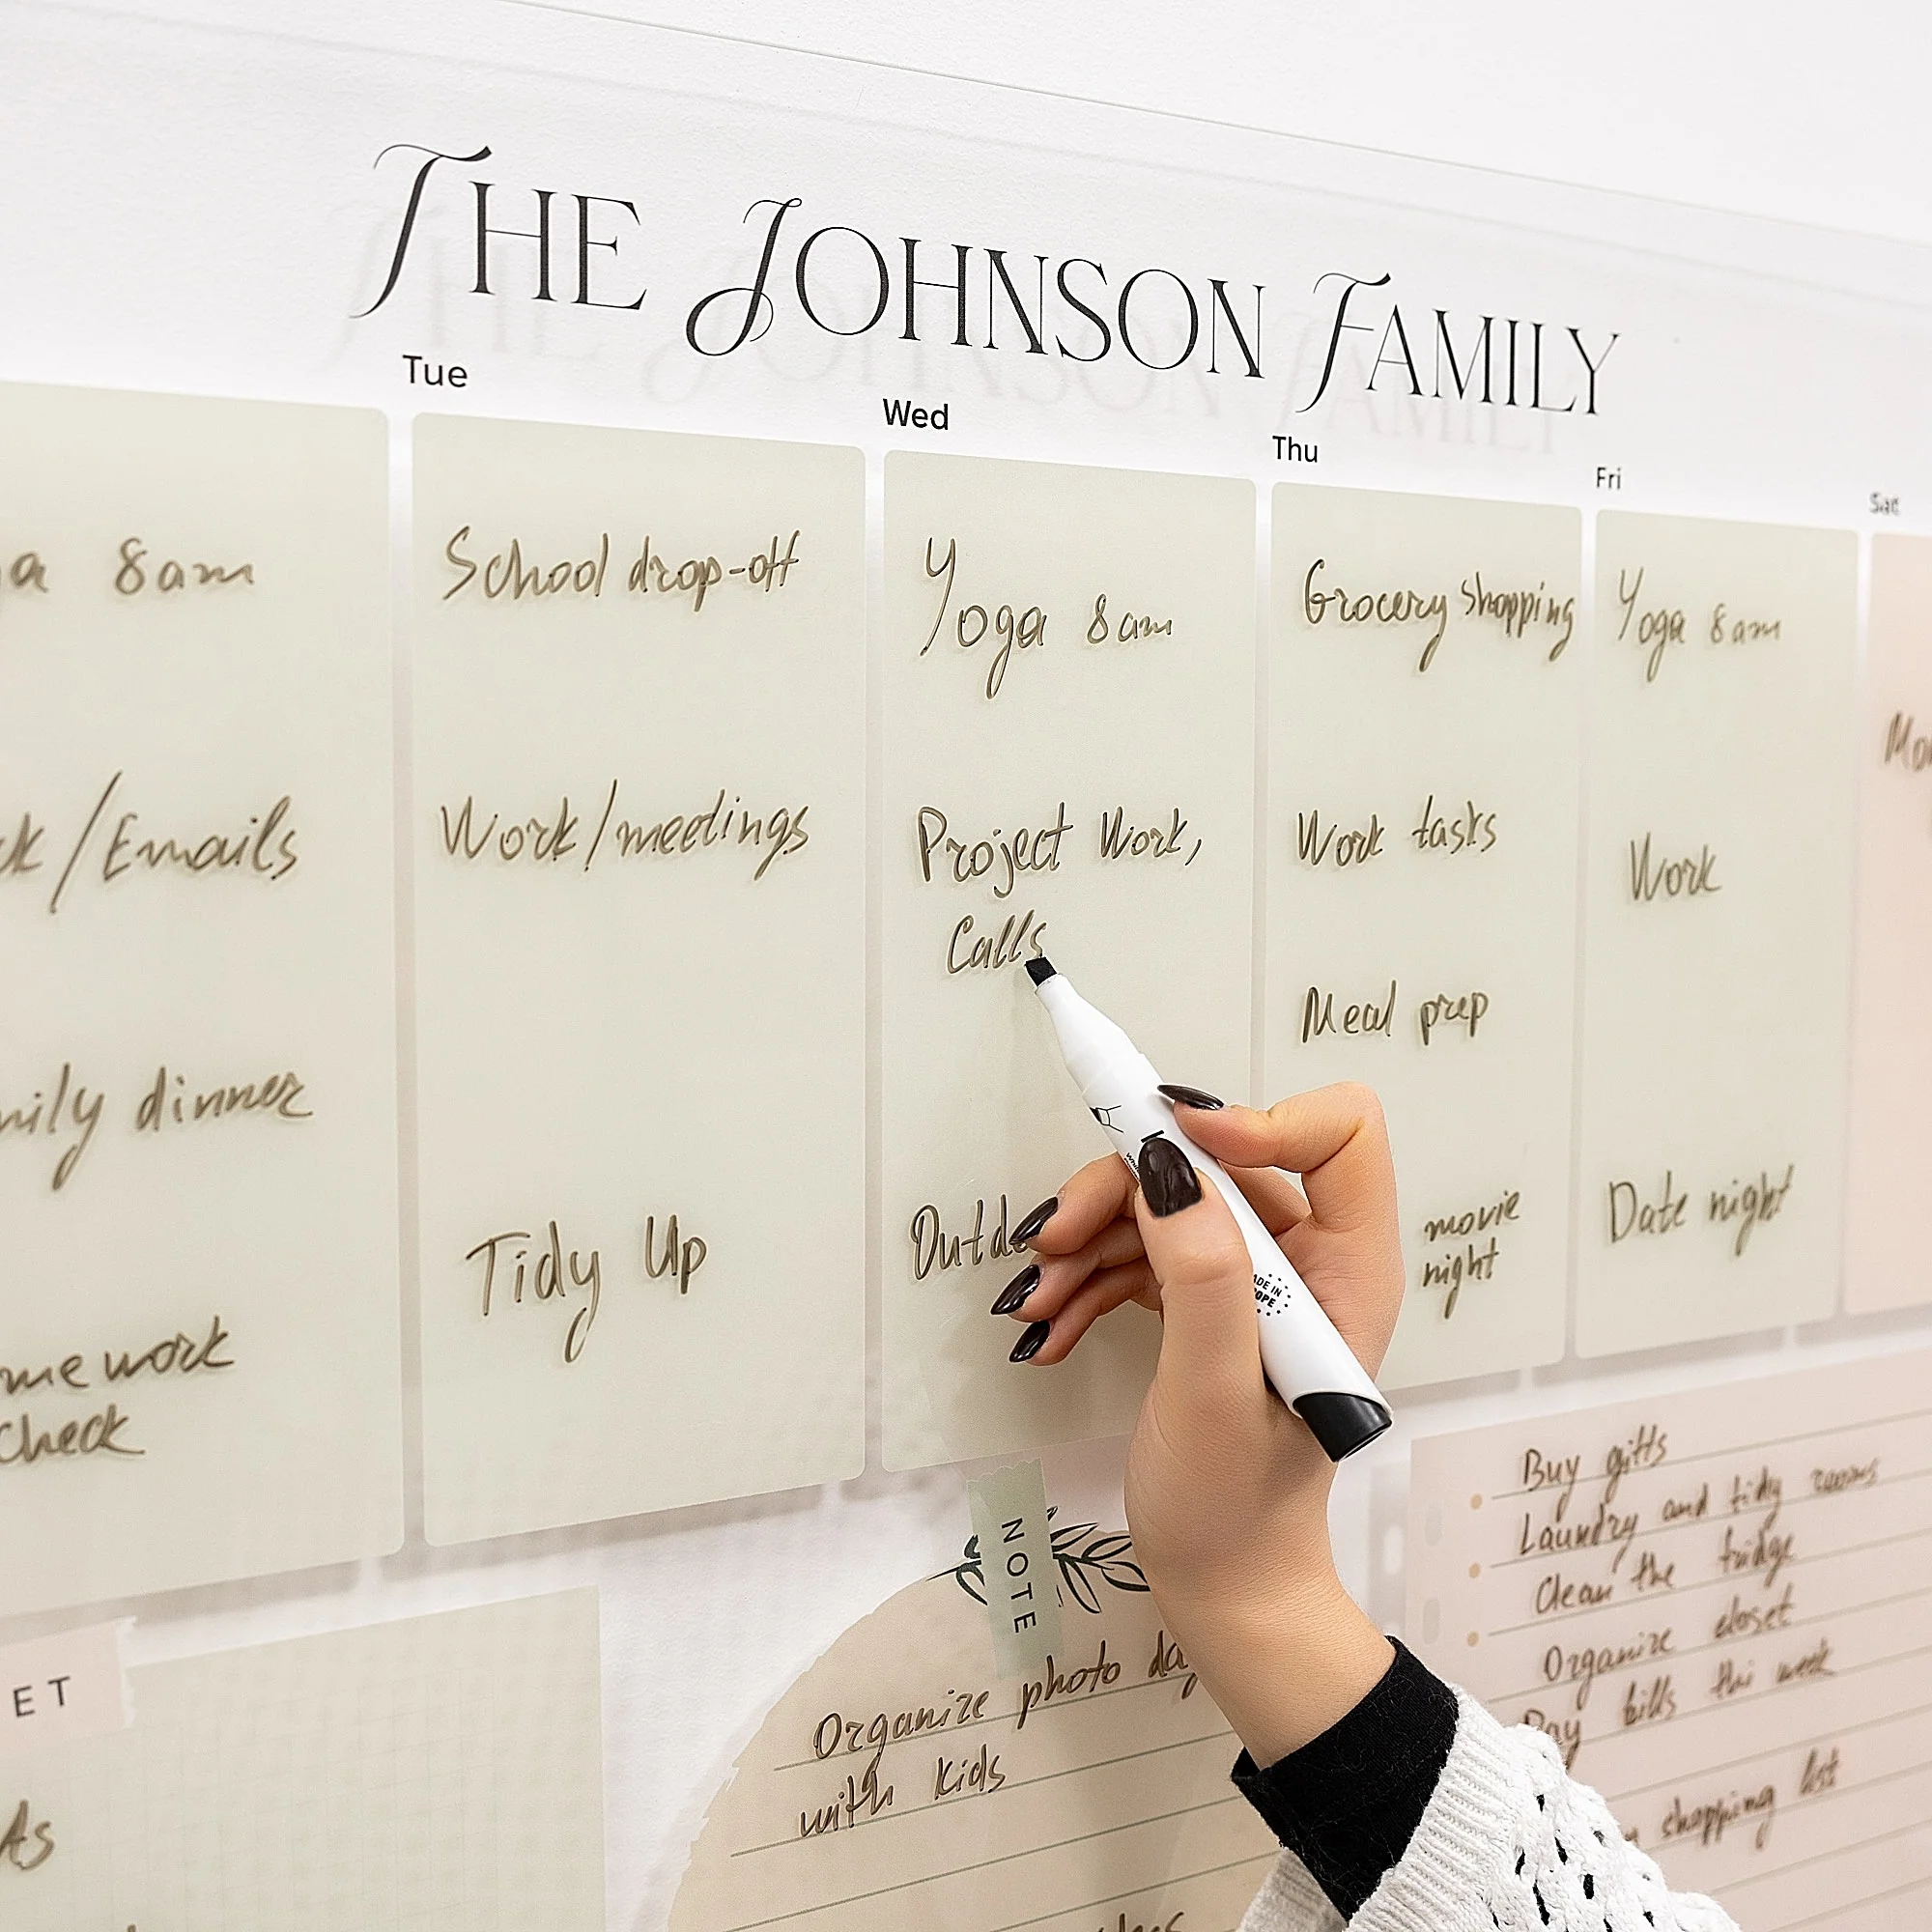 THE JOHNSON FAMILY
Tue
Wed
Thu
Fri
Sat
8am
/Emails
dinner
check
School drop-off
Work/meetings
Tidy Up
Yoga 8am
Project Work,
Calls
Grocery shopping
Work tasks
Meal prep
movie
night
Yoga 8am
Work
Date night
NOTE
Organize photo
with kids
Buy gifts
Laundry and tidy rooms
Clean the fridge
Organize closet
Pay bills this week
shopping list